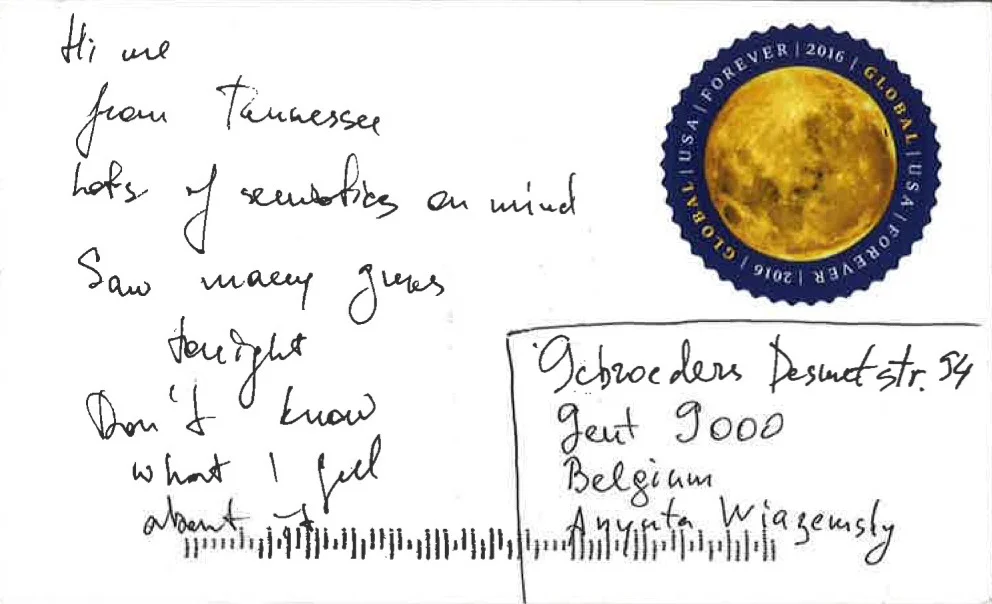 Hi me
from Tennessee
Lots of semiotics on mind
Saw many guns
tonight
Don't know
what I feel
about it
GLOBAL | USA | FOREVER | 2016 | GLOBAL | USA | FOREVER | 2016 |
Gebroeders Desmetstr. 54
Gent 9000
Belgium
Anyuta Wiazemsky